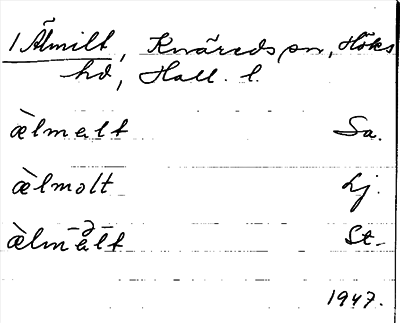 1 Älmilt, Knäreds sn, Höks
hd, Hall. l.
æ̀lmalt Sa.
æ̀lmolt Lj.
æ̀lm-ə-alt St.
1947.